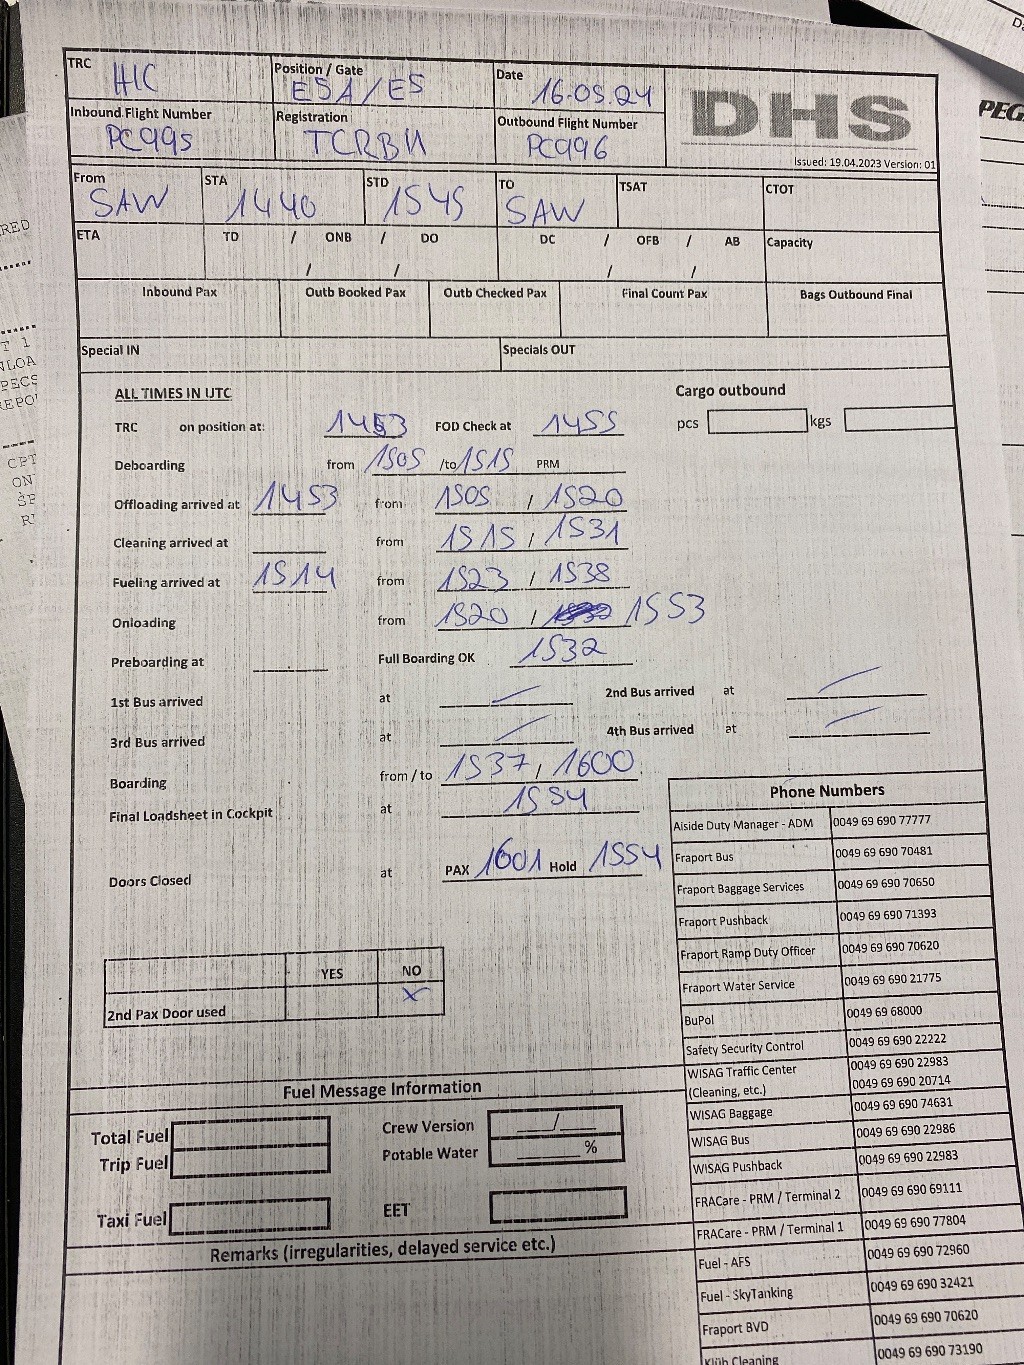 TRC HIC Position / Gate E5A/E5 Date 16.05.24 DHS
Inbound Flight Number PC995 Registration TCRBU Outbound Flight Number PC996
Issued: 19.04.2023 Version: 01
From SAW STA 1440 STD 1545 TO SAW TSAT CTOT
ETA TD / ONB / DO DC / OFB / AB Capacity
/ / / /
Inbound Pax Outb Booked Pax Outb Checked Pax Final Count Pax Bags Outbound Final
Special IN Specials OUT
ALL TIMES IN UTC Cargo outbound
TRC on position at: 1453 FOD Check at 1455 pcs kgs
Deboarding from 1505 /to 1515 PRM
Offloading arrived at 1453 from 1505 / 1520
Cleaning arrived at from 1515 / 1531
Fueling arrived at 1514 from 1523 / 1538
Onloading from 1520 / 1553
Preboarding at Full Boarding OK 1532
1st Bus arrived at 2nd Bus arrived at
3rd Bus arrived at 4th Bus arrived at
Boarding from / to 1537, 1600
Final Loadsheet in Cockpit at 1554
Doors Closed at PAX 1601 Hold 1554
YES NO
2nd Pax Door used X
Phone Numbers
Aiside Duty Manager - ADM 0049 69 690 77777
Fraport Bus 0049 69 690 70481
Fraport Baggage Services 0049 69 690 70650
Fraport Pushback 0049 69 690 71393
Fraport Ramp Duty Officer 0049 69 690 70620
Fraport Water Service 0049 69 690 21775
BuPol 0049 69 68000
Safety Security Control 0049 69 690 22222
WISAG Traffic Center 0049 69 690 22983
(Cleaning, etc.) 0049 69 690 20714
WISAG Baggage 0049 69 690 74631
WISAG Bus 0049 69 690 22986
WISAG Pushback 0049 69 690 22983
FRACare - PRM / Terminal 2 0049 69 690 69111
FRACare - PRM / Terminal 1 0049 69 690 77804
Fuel - AFS 0049 69 690 72960
Fuel - SkyTanking 0049 69 690 32421
Fraport BVD 0049 69 690 70620
Klüh Cleaning 0049 69 690 73190
Fuel Message Information
Total Fuel Crew Version /
Trip Fuel Potable Water %
Taxi Fuel EET
Remarks (irregularities, delayed service etc.)